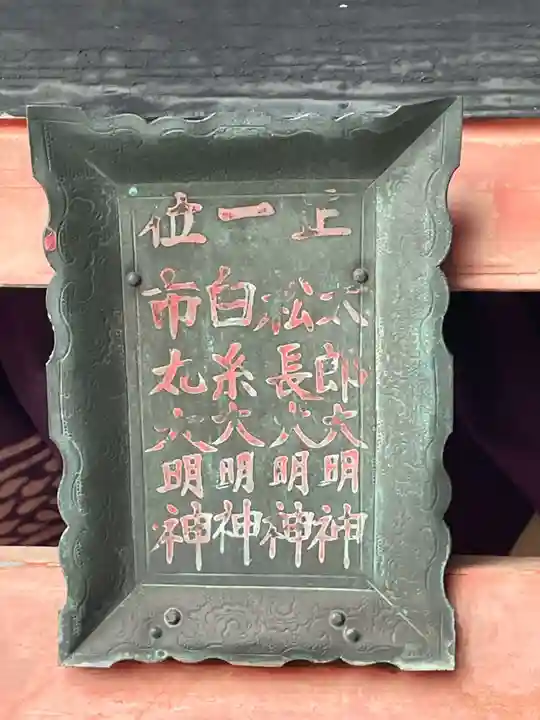 正一位
太郎大明神
松長大明神
白糸大明神
市丸大明神